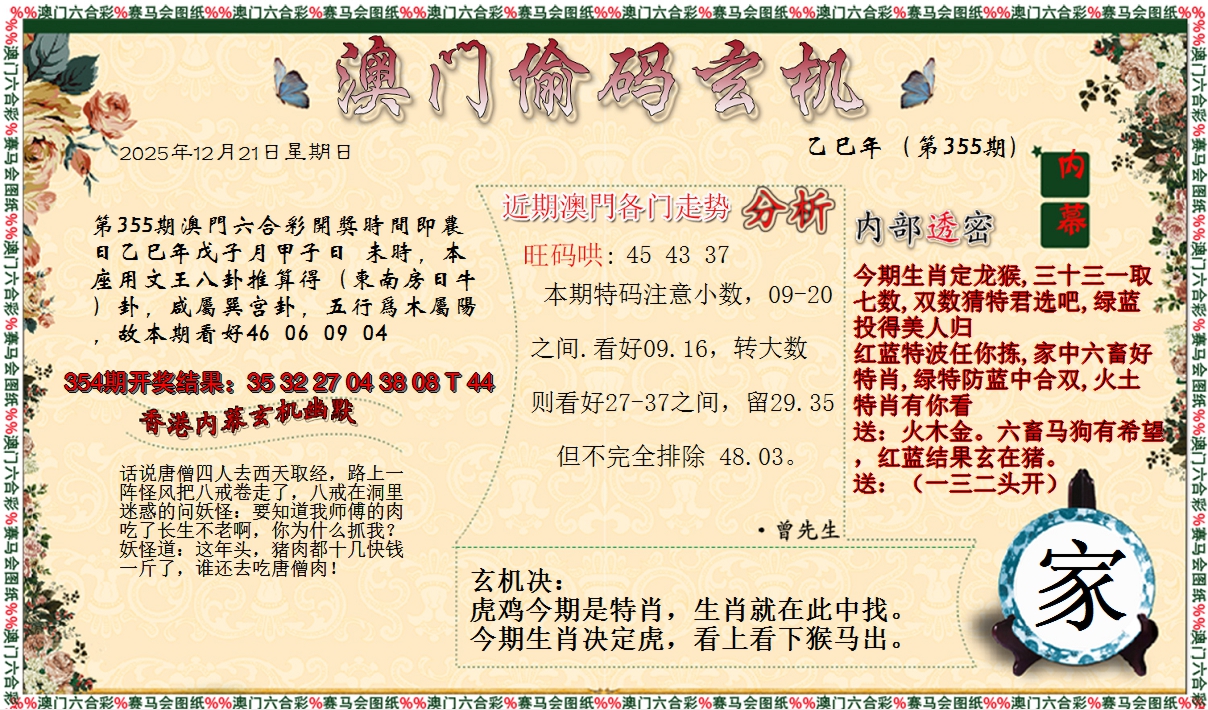 %%澳门六合彩%赛马会图纸%%澳门六合彩%赛马会图纸%%澳门六合彩%赛马会图纸%%澳门六合彩%赛马会图纸%%澳门六合彩%赛马会图纸%%澳门六合彩%赛马会图纸%%
澳门偷码玄机
2025年12月21日星期日
乙巳年（第355期）
内
幕
第355期澳門六合彩開獎時間即農
日乙巳年戊子月甲子日 未時，本
座用文王八卦推算得（東南房日牛
）卦，咸屬巽宫卦，五行爲木屬陽
，故本期看好46 06 09 04
354期开奖结果：35 32 27 04 38 08 T 44
香港内幕玄机幽默
话说唐僧四人去西天取经，路上一
阵怪风把八戒卷走了，八戒在洞里
迷惑的问妖怪：要知道我师傅的肉
吃了长生不老啊，你为什么抓我？
妖怪道：这年头，猪肉都十几快钱
一斤了，谁还去吃唐僧肉！
近期澳門各门走势 分析
旺码哄: 45 43 37
本期特码注意小数，09-20
之间.看好09.16，转大数
则看好27-37之间，留29.35
但不完全排除 48.03。
·曾先生
内部透密
今期生肖定龙猴,三十三一取
七数,双数猜特君选吧,绿蓝
投得美人归
红蓝特波任你拣,家中六畜好
特肖,绿特防蓝中合双,火土
特肖有你看
送：火木金。六畜马狗有希望
，红蓝结果玄在猪。
送：（一三二头开）
玄机决：
虎鸡今期是特肖，生肖就在此中找。
今期生肖决定虎，看上看下猴马出。
家
%%澳门六合彩%赛马会图纸%%澳门六合彩%赛马会图纸%%澳门六合彩%赛马会图纸%%澳门六合彩%赛马会图纸%%澳门六合彩%赛马会图纸%%澳门六合彩%赛马会图纸%%